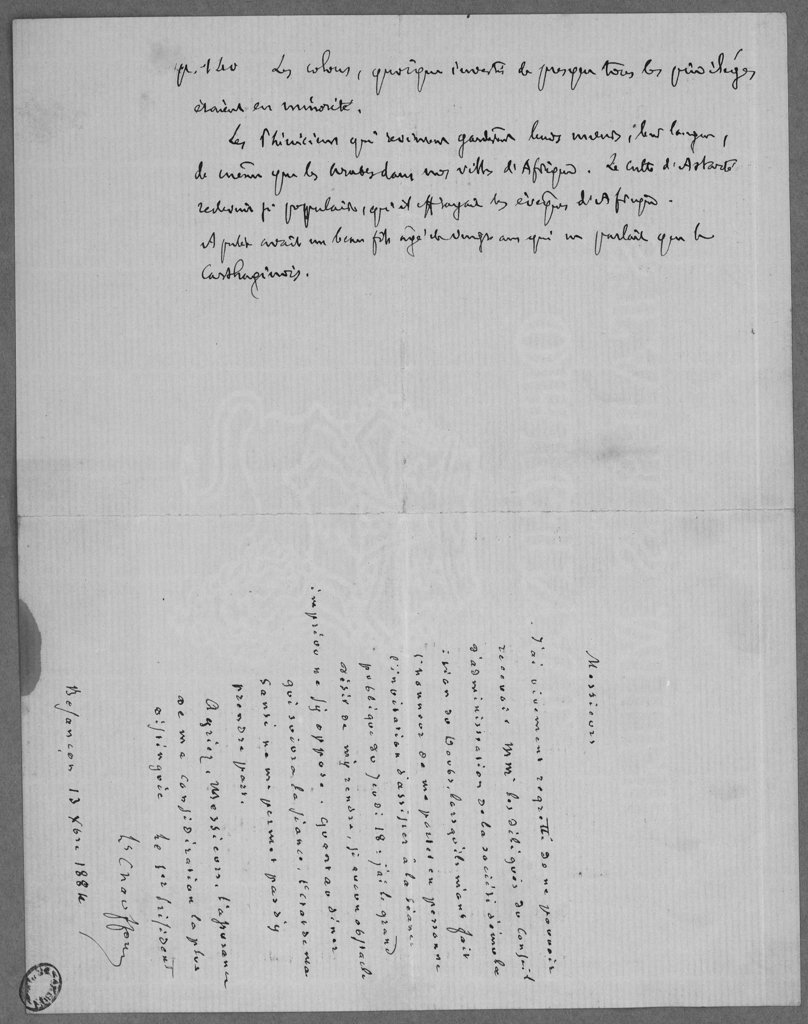 p. 140 Les colons, quoique investis de presque tous les privilèges
étaient en minorité.
Les Phéniciens qui revinrent gardèrent leurs mœurs, leur langue,
de même que les Arabes dans nos villes d'Afrique. Le culte d'Astarté
redevint si populaire, qu'il effrayait les évêques d'Afrique.
Apulée avait un beau fils âgé de vingt ans qui ne parlait que le
Carthaginois.
Messieurs
J'ai vivement regretté de ne pouvoir
recevoir MM. les délégués du Conseil
d'administration de la société d'émula
-tion du Doubs, lorsqu'ils m'ont fait
l'honneur de me porter en personne
l'invitation d'assister à la séance
publique du Jeudi 18. j'ai le grand
désir de m'y rendre, si aucun obstacle
imprévu ne s'y oppose. Quant au dîner
qui suivra la séance, l'état de ma
santé ne me permet pas d'y
prendre part.
Agréez, Messieurs, l'assurance
de ma considération la plus
distinguée Le président
Chauffour
Besançon 13 Xbre 1884